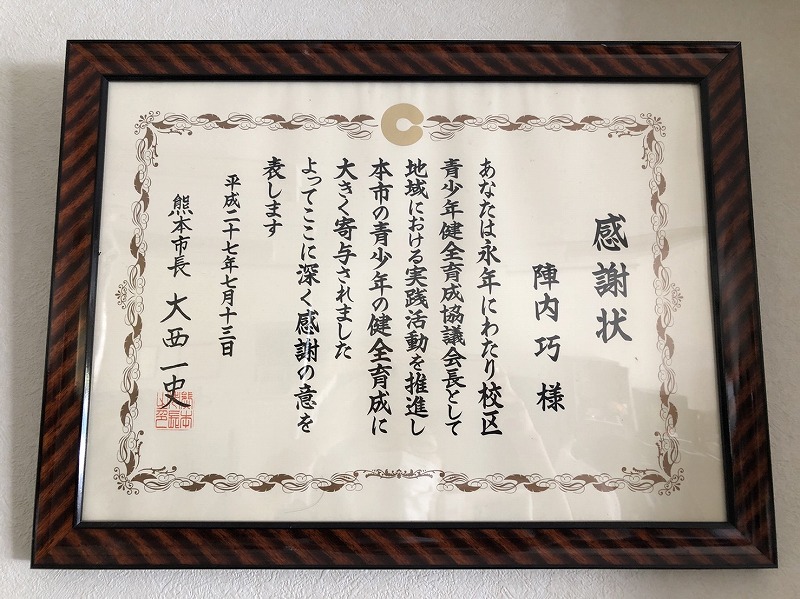 感謝状
陣内巧様
あなたは永年にわたり校区
青少年健全育成協議会長として
地域における実践活動を推進し
本市の青少年の健全育成に
大きく寄与されました
よってここに深く感謝の意を
表します
平成二十七年七月十三日
熊本市長 大西一史